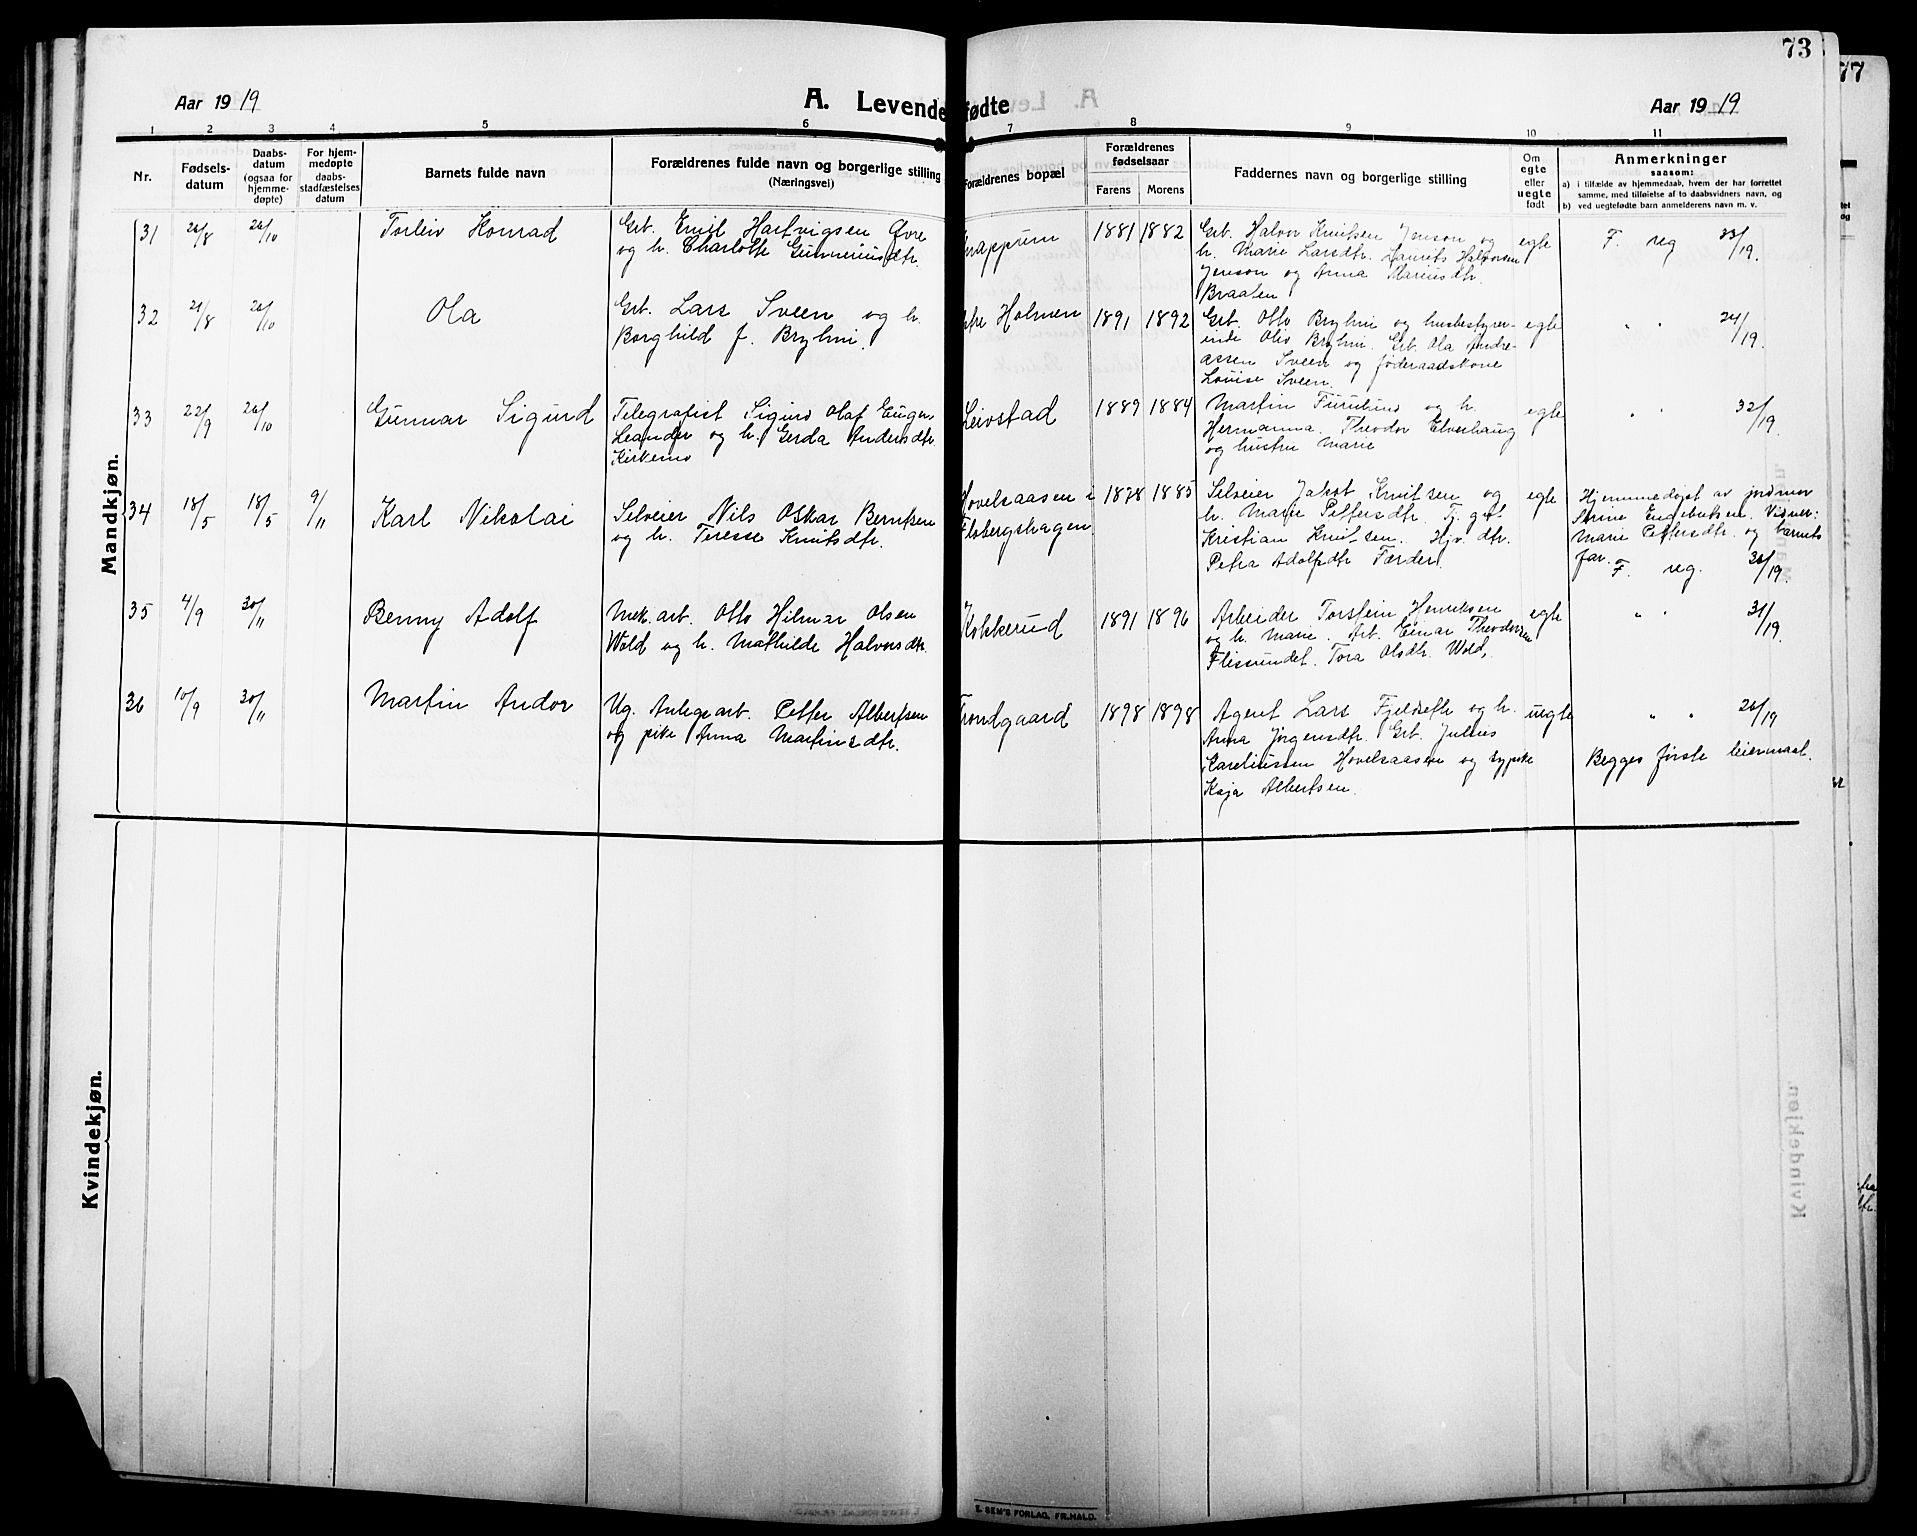 73
77
Aar 1919
A. Levende fødte
Aar 1919
1 2 3 4 5 6 7 8 9 10 11
Nr.
Fødsels-
datum
Daabs-
datum
(ogsaa for
hjemme-
døpte)
For hjem-
medøpte
daabs-
stadfæstelses
datum
Barnets fulde navn
Forældrenes fulde navn og borgerlige stilling
(Næringsvei)
Forældrenes bopæl
Forældrenes
fødselsaar
Farens
Morens
Faddernes navn og borgerlige stilling
Om
egte
eller
uegte
født
Anmerkninger
saasom:
a) i tilfælde av hjemmedaab, hvem der har forrettet
samme, med tilføielse af to daabsvidners navn, og
b) ved uegtefødte barn anmelderens navn m. v.
Mandkjøn.
31 26/8 26/10 Torleiv Konrad
Grb. Emil Hartvigsen Øvre
og h. Charlotte Gunneriusdtr.
1881 1882
Grb. Halvor Knutsen Jenson og
h. Marie Larsdtr. Laurits Halvorsen
Jenson og Anna Mariusdtr.
Braaten
egte
F. reg 33/19.
32 21/8 26/10 Ola
Grb. Lars Sveen og h.
Borghild f. Bryhni.
Holmen
1891 1892
Grb. Otto Bryhni og husbestyrer-
inde Olis Bryhni. Grb. Ola Andre-
assen Sveen og føderaadskone
Louise Sveen.
egte
" " 24/19.
33 22/9 26/10 Gunnar Sigurd
Telegrafist Sigurd Olaf Eugen
Leander og h. Gerda Andersdtr.
Kirkemo
Leivstad
1889 1884
Martin Furulund og h.
Hermanna. Theodor Elverhaug
og hustru Marie
egte
" " 32/19.
34 18/5 18/5 9/11 Karl Nikolai
Selveier Nils Oskar Berntsen
og h. Teresse Knutsdtr.
Hovelsaasen i
Flobergshagen
1878 1885
Selveier Jakob Knutsen og
h. Marie Pettersdtr. Tj. gut
Kristian Knutsen. Hjv. dtr.
Petra Adolfsdtr Færder.
egte
Hjemmedøpt av jordmor
Engebretsen. Vidner:
Marie Pettersdtr. og barnets
far.
F. reg. 30/19.
35 4/9 30/11 Benny Adolf
Mek. arb. Otto Hilmar Olsen
Wold og h. Mathilde Halvorsdtr.
Kokkerud
1891 1896
Arbeider Torstein Henriksen
og h. Marie. Arb. Einar Theodorsen
Flissundet. Tora Olsdtr. Wold.
egte
" " 31/19.
36 10/9 30/11 Martin Andor
Ug. Anlegsarb. Petter Albertsen
og pike Anna Martinsdtr.
Trondgaard
1898 1898
Agent Lars Fjeldseth og h.
Anna Jørgensdtr. Grb. Julius
Kareliussen Hovelsaasen og sypike
Kaja Albertsen.
uegte
" " 26/19
Begges første leiermaal.
Kvindekjøn.
E. SEM'S FORLAG, FR.HALD.